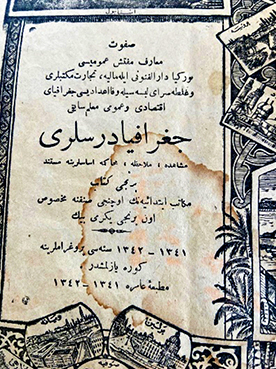 صفوت
معارف مفتش عمومیسی
تورکیا دار الفنونی ایله مالیه، تجارت مکتبلری
وغلطه سرای لیسه سیله قاضی اعدادیسی جغرافیای
اقتصادی وعمومی معلم سابقی
جغرافیا درسلری
مشاهده ، ملاحظه ، محاکمه اساسلرینه مستند
برنجی کتاب
مکاتب ابتدائیه نك اوچنجی صنفنه مخصوص
اون برنجی یکرمی بیك
۱۳۴۱ – ۱۳۴۲ سنه سی پروغراملرینه
کوره یازلمشدر
مطبعهٔ عامره ۱۳۴۱–۱۳۴۲